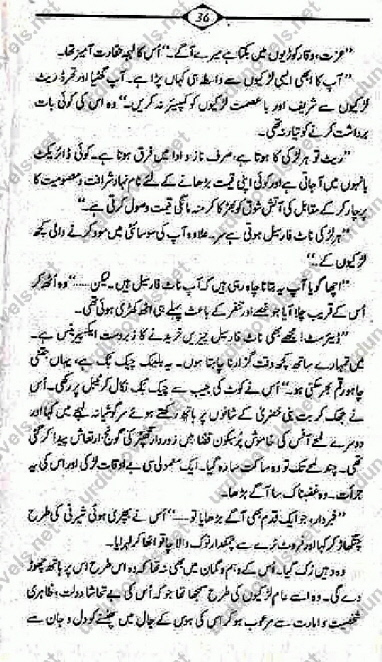 36
”عزت، وقار کوڑیوں میں بکتا ہے میرے آگے۔“ اُس کا لہجہ حقارت آمیز تھا۔
”آپ کا ابھی ایسی لڑکیوں سے واسطہ ہی کہاں پڑا ہے۔ آپ گھٹیا اور تھرڈ ریٹ
لڑکیوں سے شریف اور باعصمت لڑکیوں کو کمپیئر نہ کریں۔“ وہ اس کی کوئی بات
برداشت کرنے کو تیار نہ تھی۔
”ریٹ تو ہر لڑکی کا ہوتا ہے، صرف ناز و ادا میں فرق ہوتا ہے۔ کوئی ڈائریکٹ
بانہوں میں آ جاتی ہے اور کوئی اپنی قیمت بڑھانے کے لئے نام نہاد شرافت و معصومیت کا
پرچار کر کے مقابل کی آتش شوق کو بھڑکا کر منہ مانگی قیمت وصول کرتی ہے۔“
”ہر لڑکی ناٹ فار سیل ہوتی ہے سر۔ علاوہ آپ کی سوسائٹی میں موو کرنے والی کچھ
لڑکیوں کے۔“
”اچھا گویا آپ یہ بتانا چاہ رہی ہیں کہ آپ ناٹ فار سیل ہیں۔ لیکن......“ وہ اُٹھ کر
اُس کے قریب چلا آیا جو غصے اور تنفر کے باعث پہلے ہی اٹھ کھڑی ہوئی تھی۔
”ڈیئرسٹ! مجھے بھی ناٹ فار سیل چیزیں خریدنے کا زبردست ایکسپیرینس ہے۔
میں تمہارے ساتھ کچھ وقت گزارنا چاہتا ہوں۔ یہ بلینک چیک بک ہے، یہاں جتنی
چاہو رقم بھر سکتی ہو۔“ اُس نے کوٹ کی جیب سے چیک بک نکال کر ٹیبل پر رکھی۔ اُس
نے جھک کر بت بنی خضریٰ کے شانوں پر ہاتھ رکھتے ہوئے سرگوشیانہ لہجے میں کہا اور
دوسرے لمحے آفس کی خاموش پُرسکون فضا میں زوردار تھپڑ کی گونج ارتعاش پیدا کر گئی
تھی۔ چند لمحے تک تو وہ ساکت سا رہ گیا۔ ایک معمولی سی بے اوقات لڑکی اور اس کی یہ
جرأت۔ وہ غضبناک سا آگے بڑھا۔
”خبردار، جو ایک قدم بھی آگے بڑھایا تو......“ اُس نے بپھری ہوئی شیرنی کی طرح
چنگھاڑ کر کہا اور فروٹ ٹرے سے چمکدار نوک والا چاقو اٹھا کر لہرایا۔
وہ وہیں رُک گیا۔ اُس کے وہم و گمان میں بھی نہ تھا کہ وہ اس طرح اس پر ہاتھ چھوڑ
دے گی۔ وہ اسے عام لڑکیوں کی طرح سمجھا تھا جو کہ اُس کی بے تحاشا دولت، ظاہری
شخصیت و امارت سے مرعوب ہو کر اس کی ہوس کے جال میں پھنسنے کو دل و جان سے